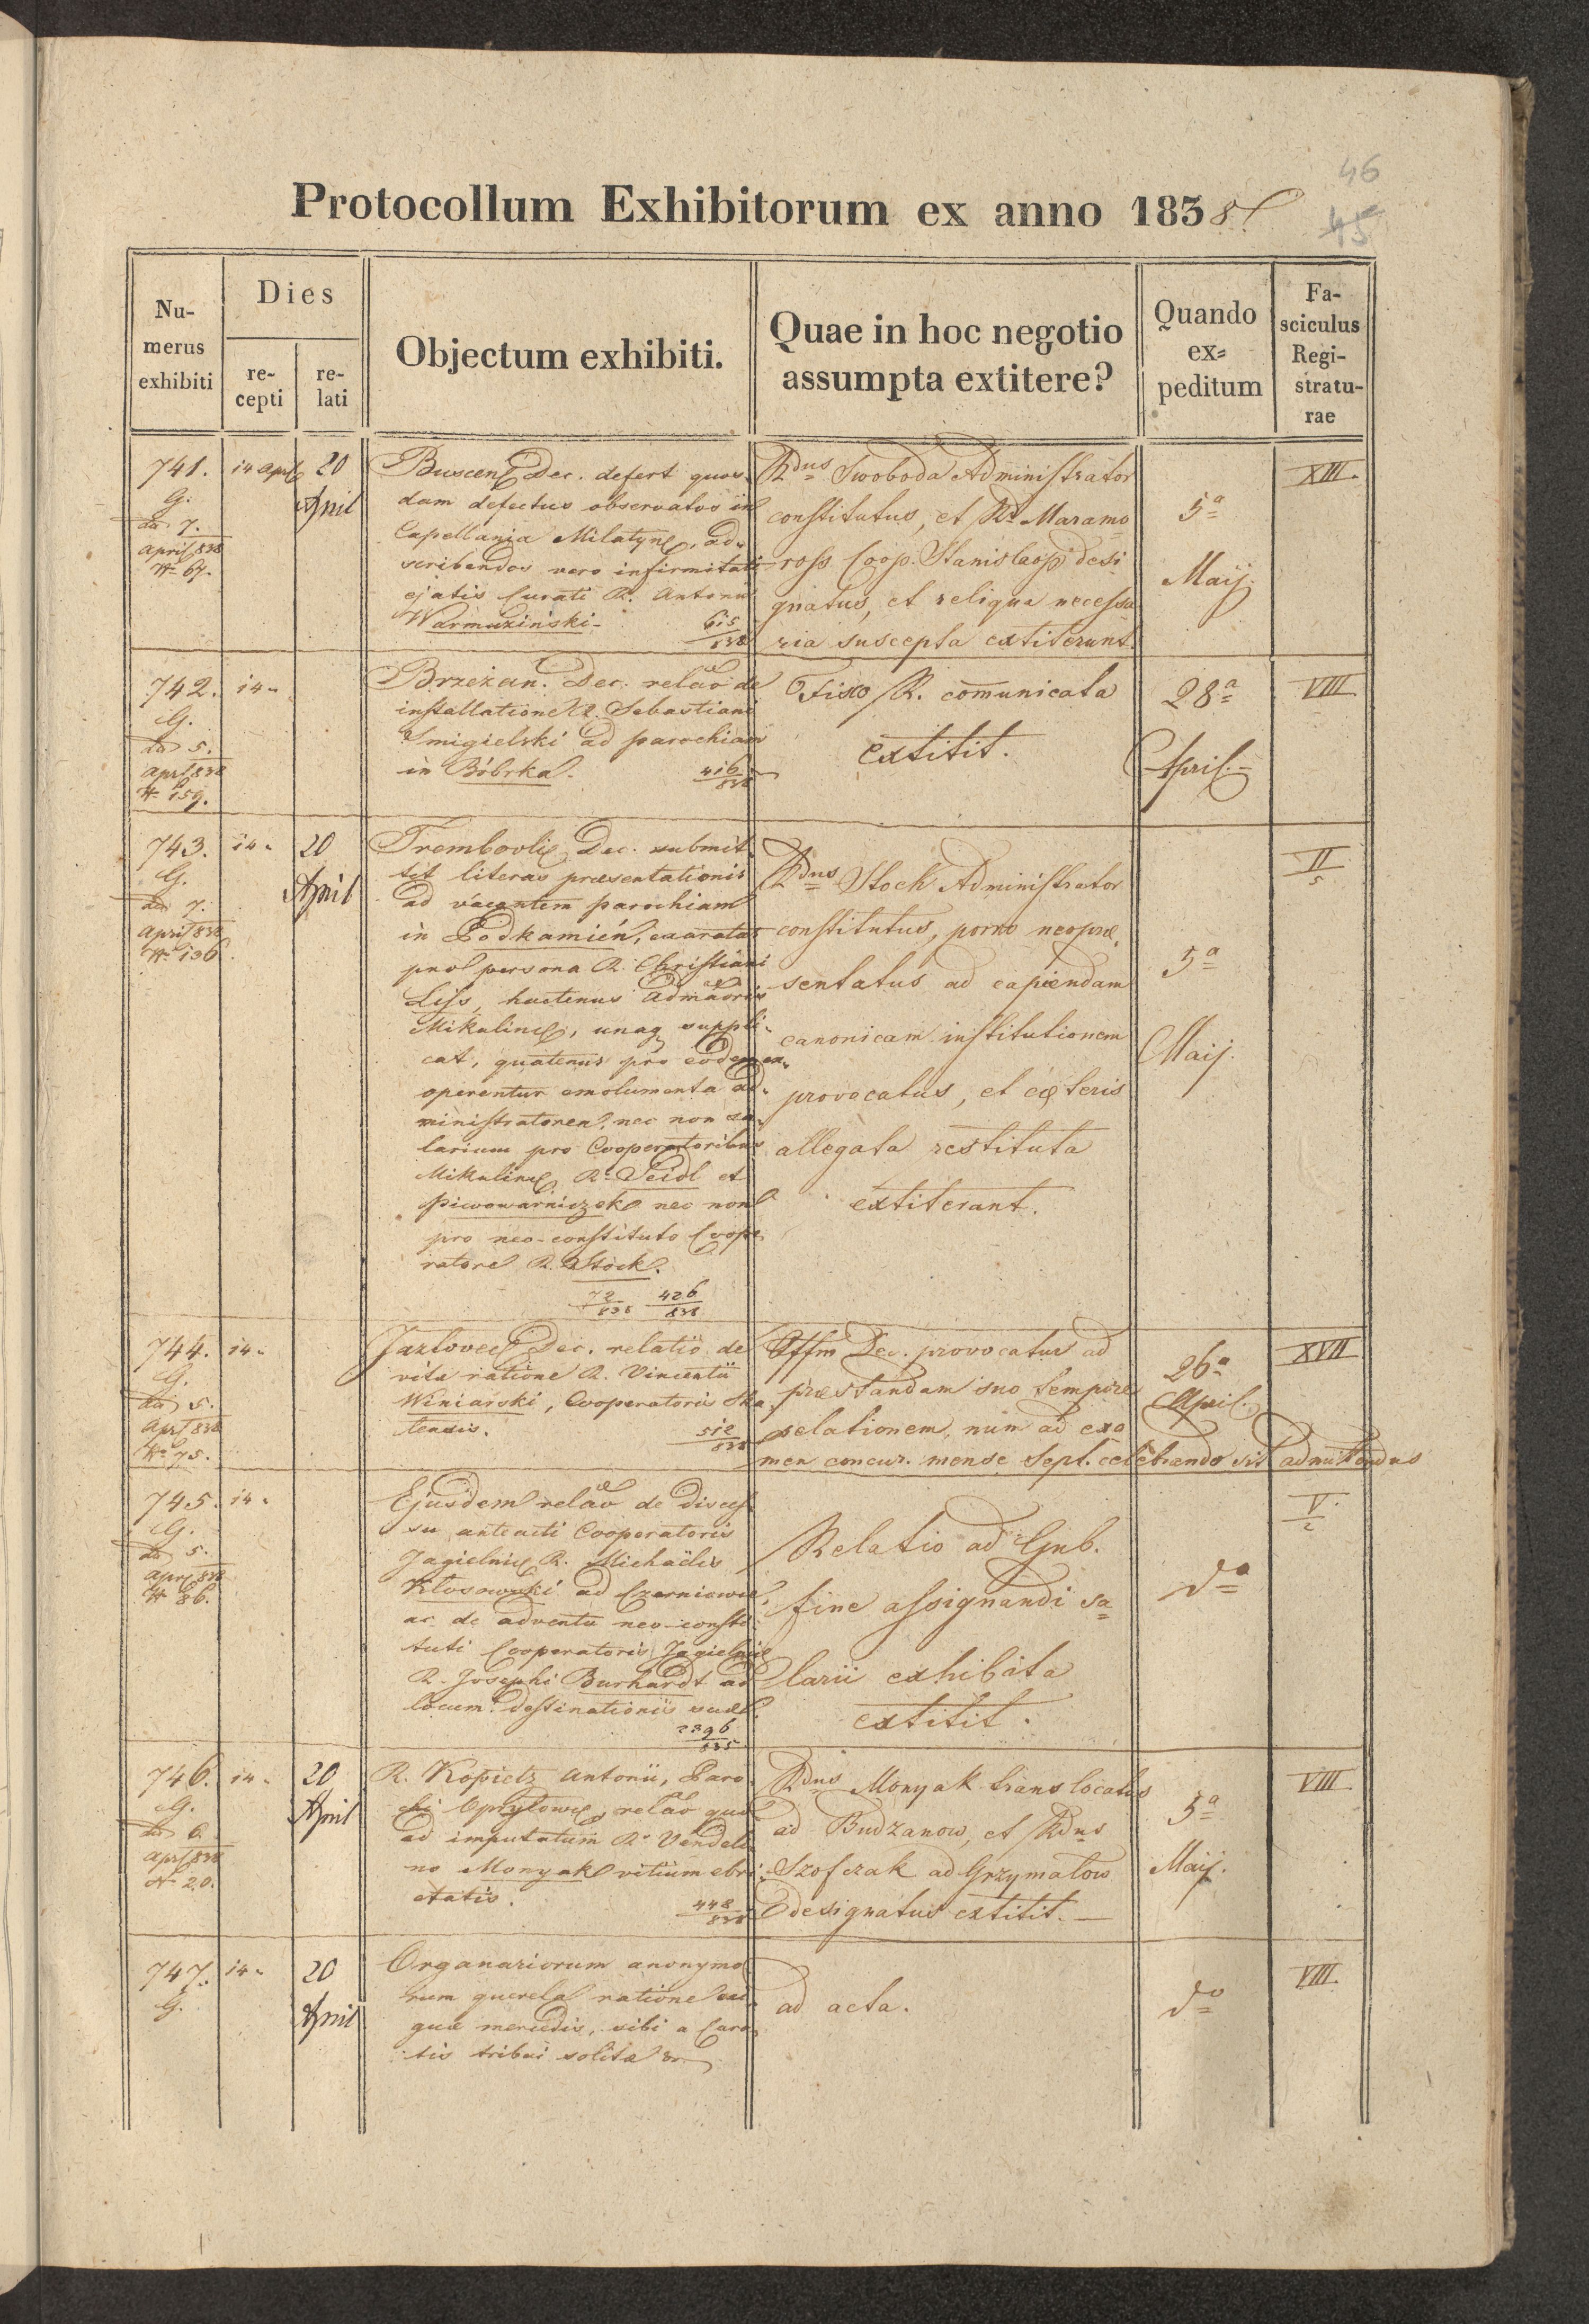 46
45
Protocollum Exhibitorum ex anno 1838
Numerus exhibiti
Dies
recepti
relati
Objectum exhibiti.
Quae in hoc negotio
assumpta extitere?
Quando
ex=
peditum
Fa-
sciculus
Regi-
stratu-
rae
741.
G.
dd 7.
April 838
N 67.
14 April
20
April
Buscens Dec. defert quos-
dam defectus observatos in
Capellania Milatyn, ad-
scribendos vero infirmitati
ejatis Curati R. Antonii
Warmuziński.
615
838
Rdus Swoboda Administrator
constitutus, et Rd Maramo
ross Coop. Stanislaop desi
gnatus, et reliqua necessa
ria suscepta extiterunt.
5a
Maij.
XIII.
742.
G.
dd 5.
Apr 838
N 159.
14 "
Brzeżan. Dec. relao de
installatione R. Sebastiani
Smigielski ad parochiam
in Bóbrka.
416
838
Fisco R. comunicata
extitit.
28a
April.
VIII
743.
G.
dd 7.
April 838
N 136.
14 "
20
April
Trembovlie Dec. submit
tit literas praesentationis
ad vacantem parochiam
in Podkamień, exaratas
pro persona R. Christiani
Liss, hactenus Admaoris
Mikulinc, unaq suppli-
cat, quatenus pro eodem ex-
operentur emolumenta ad-
ministratorea, nec non sa-
larium pro Cooperatoribus
Mikulinc R. Seidl et
Piwowarniczek nec non
pro neo-constituto Coope
ratore R. Stock.
72
838
426
838
Rdus Stock Administrator
constitutus, porro neoprae
sentatus ad capiendam
canonicam institutionem
provocatus, et caeteris
allegata restituta
extiterant.
5a
Maij.
II
5
744.
G.
dd 5.
Apr 838
N 75.
14 "
Jazlovec Dec. relatio de
vita ratione R. Vincentii
Winiarski, Cooperatoris Ska
tensis.
512
838
Offm Dec. provocatur ad
praestandam suo tempore
relationem, num ad exa
men concur. mense Sept. celebrando sit admittendus
26a
April.
XVII
745.
G.
dd 5.
Apr 838
N 86.
14 "
Ejusdem relao de disces
su anteacti Cooperatoris
Jagielnic R. Michaëlis
Kłosowski ad Czerniowic,
ac de adventu neo-consti
tuti Cooperatoris Jagielnic
R. Josephi Burhardt ad
locum destinationis suae.
2396
835
Relatio ad Gub.
fine assignandi sa=
larii exhibita
extitit.
do
V.
2
746.
G.
dd 6.
Apr 838
N 20.
14 "
20
April
R. Kopietz Antonii, Paro
chi Opryłowc, relao quo
ad imputatum R. Vendeli
no Monyak vitium ebri
etatis.
448
838
Rdus Monyak translocatus
ad Budzanow, et Rdus
Szofczak ad Grzymałow
designatus extitit. —
5a
Maij.
VIII
747.
G.
14 "
20
April
Organariorum anonymo
rum querela ratione exi
guae mercedis, sibi a Cura
tis tribui solitae
ad acta.
do
VIII.